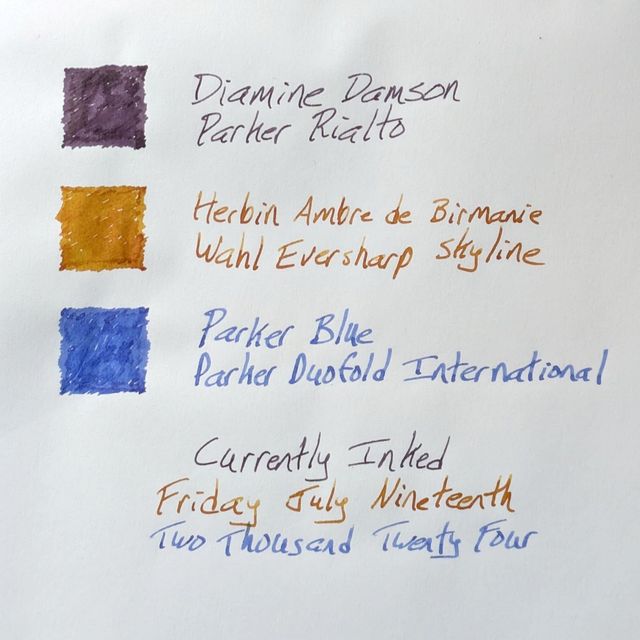 Diamine Damson
Parker Rialto
Herbin Ambre de Birmanie
Wahl Eversharp Skyline
Parker Blue
Parker Duofold International
Currently Inked
Friday July Nineteenth
Two Thousand Twenty Four